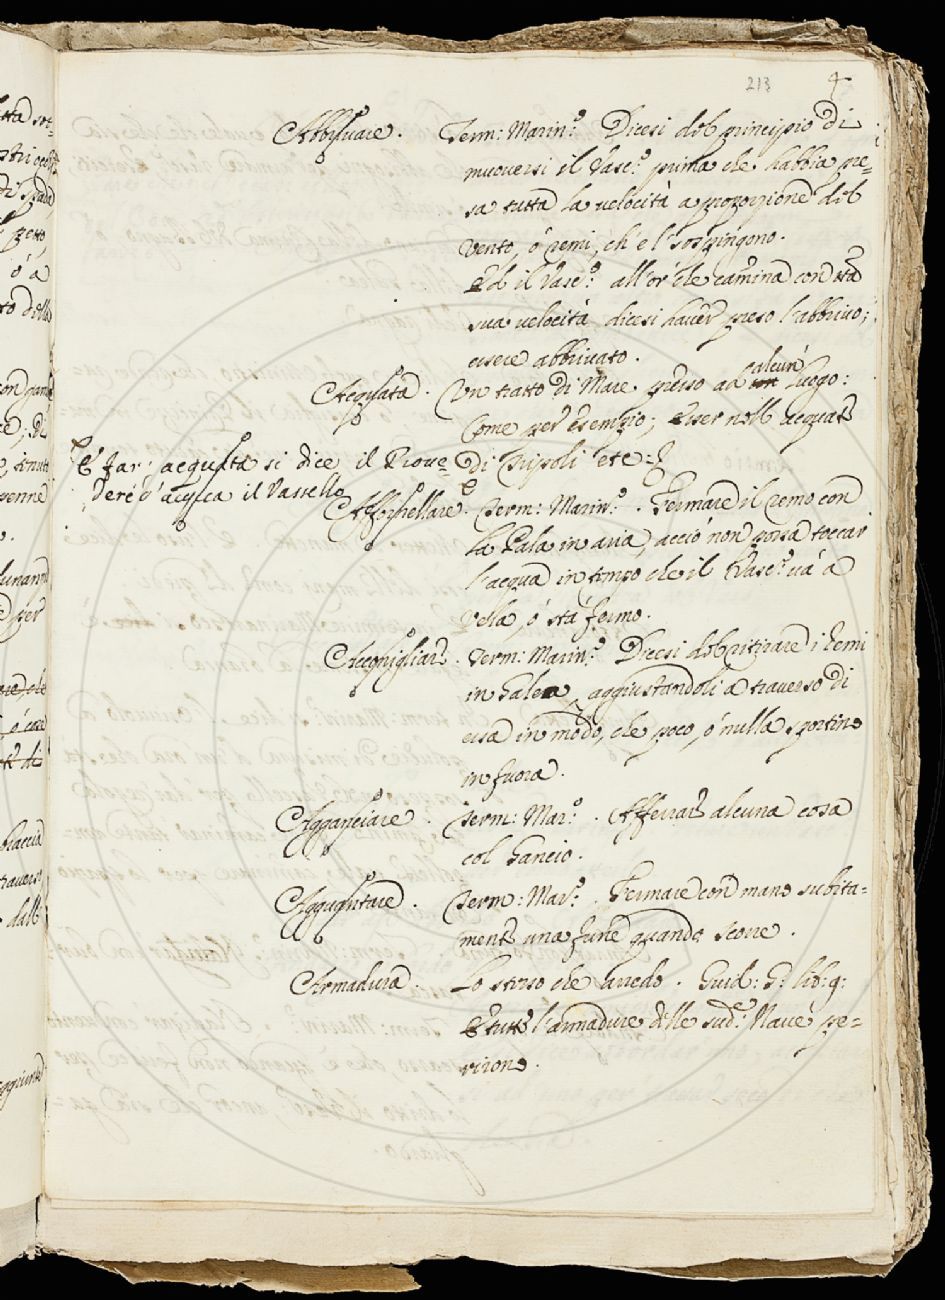 213 4
Abbrivare. Term: Marin:º Dicesi del principio di
muoversi il Vasc:º prima che habbia pre=
sa tutta la velocità a proporzione del
vento, ó remi, ch'e l'sospingono.
Ed il Vasc:º all'or che camina con tta
sua velocità dicesi haver preso l'abbrivo;
essere abbrivato.
Acquata. Un tratto di Mare presso ad alcun Luogo:
Come per esempio; Esser nell'acquate
di Tripoli etc:
E far' acquata si dice il Prove=
dere d'acqua il Vassello
Afforchellare. Term: Marin:º. Fermare il remo con
la Pala in aria, acciò non possa toccar
l'acqua in tempo che il Vasc:º và a
vela, ó stà fermo.
Acconigliare. Term: Marin:º Dicesi del ritirare i Remi
in Galea, aggiustandoli a traverso di
essa in modo, che poco, ó nulla sportino
in fuora.
Agganciare. Term: Mar:º. Afferrare alcuna cosa
col Gancio.
Agguantare. Term: Mar:º. Fermare con mano subita=
mente una fune quando scorre.
Armadura. Lo stesso che Arredo. Guid: G: lib: 9:
E tutte l'armadure delle sud:e Nave pe=
rirono.